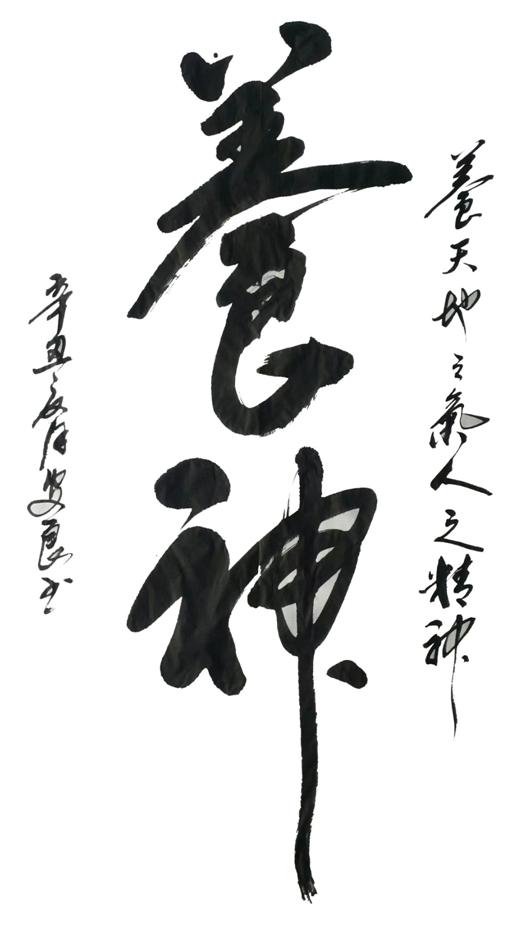 養天地之氣人之精神
養神
辛丑月良书